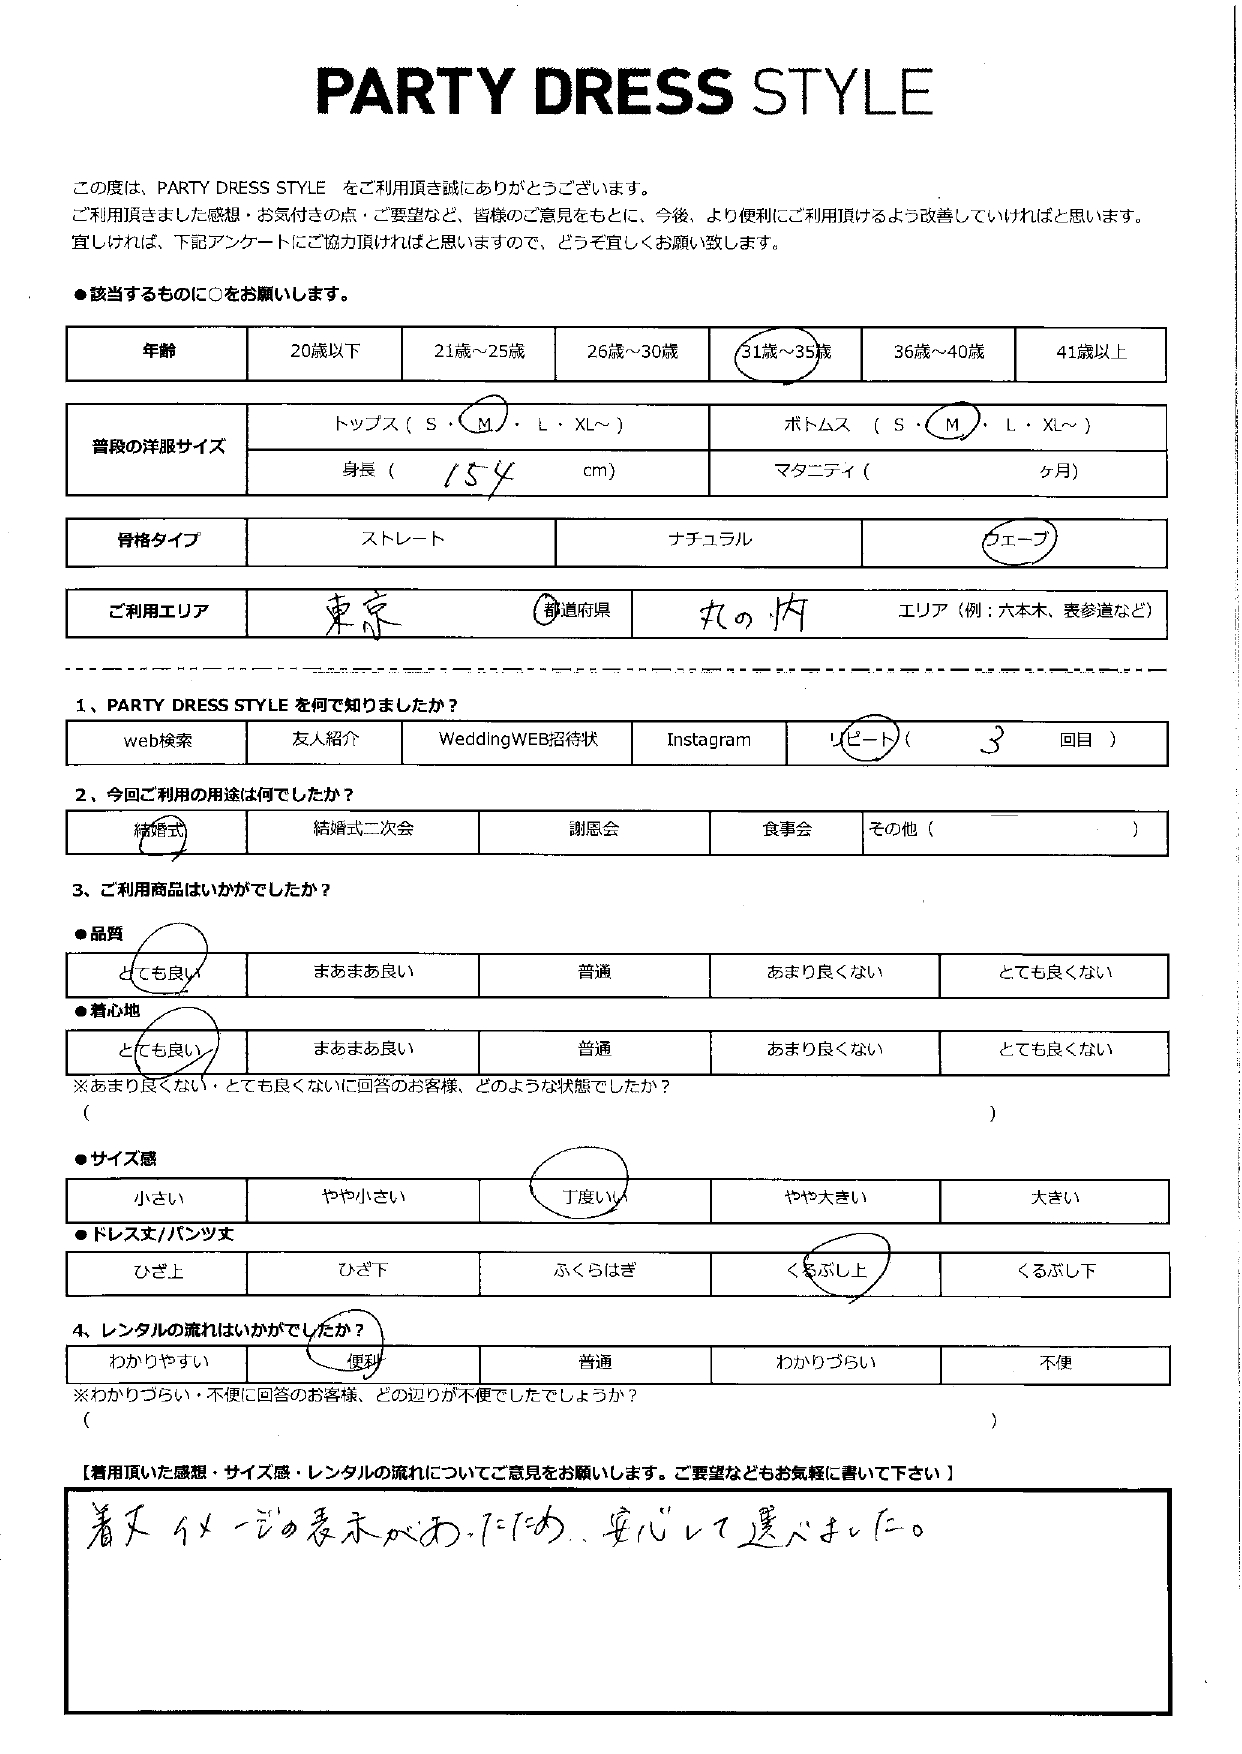 PARTY DRESS STYLE
この度は、PARTY DRESS STYLE をご利用頂き誠にありがとうございます。
ご利用頂きました感想・お気付きの点・ご要望など、皆様のご意見をもとに、今後、より便利にご利用頂けるよう改善していければと思います。
宜しければ、下記アンケートにご協力頂ければと思いますので、どうぞ宜しくお願い致します。
●該当するものに○をお願いします。
年齢 20歳以下 21歳～25歳 26歳～30歳 31歳～35歳 36歳～40歳 41歳以上
普段の洋服サイズ
トップス ( S ・ M ・ L ・ XL～ ) ボトムス ( S ・ M ・ L ・ XL～ )
身長 ( 154 cm) マタニティ ( ヶ月)
骨格タイプ ストレート ナチュラル ウェーブ
ご利用エリア 東京 都道府県 丸の内 エリア（例：六本木、表参道など）
1、PARTY DRESS STYLE を何で知りましたか？
web検索 友人紹介 WeddingWEB招待状 Instagram リピート ( 3 回目 )
2、今回ご利用の用途は何でしたか？
結婚式 結婚式二次会 謝恩会 食事会 その他 ( )
3、ご利用商品はいかがでしたか？
●品質
とても良い まあまあ良い 普通 あまり良くない とても良くない
●着心地
とても良い まあまあ良い 普通 あまり良くない とても良くない
※あまり良くない・とても良くないに回答のお客様、どのような状態でしたか？
( )
●サイズ感
小さい やや小さい 丁度いい やや大きい 大きい
●ドレス丈/パンツ丈
ひざ上 ひざ下 ふくらはぎ くるぶし上 くるぶし下
4、レンタルの流れはいかがでしたか？
わかりやすい 便利 普通 わかりづらい 不便
※わかりづらい・不便に回答のお客様、どの辺りが不便でしたでしょうか？
( )
【着用頂いた感想・サイズ感・レンタルの流れについてご意見をお願いします。ご要望などもお気軽に書いて下さい】
着丈イメージの表示があったため、安心して選べました。